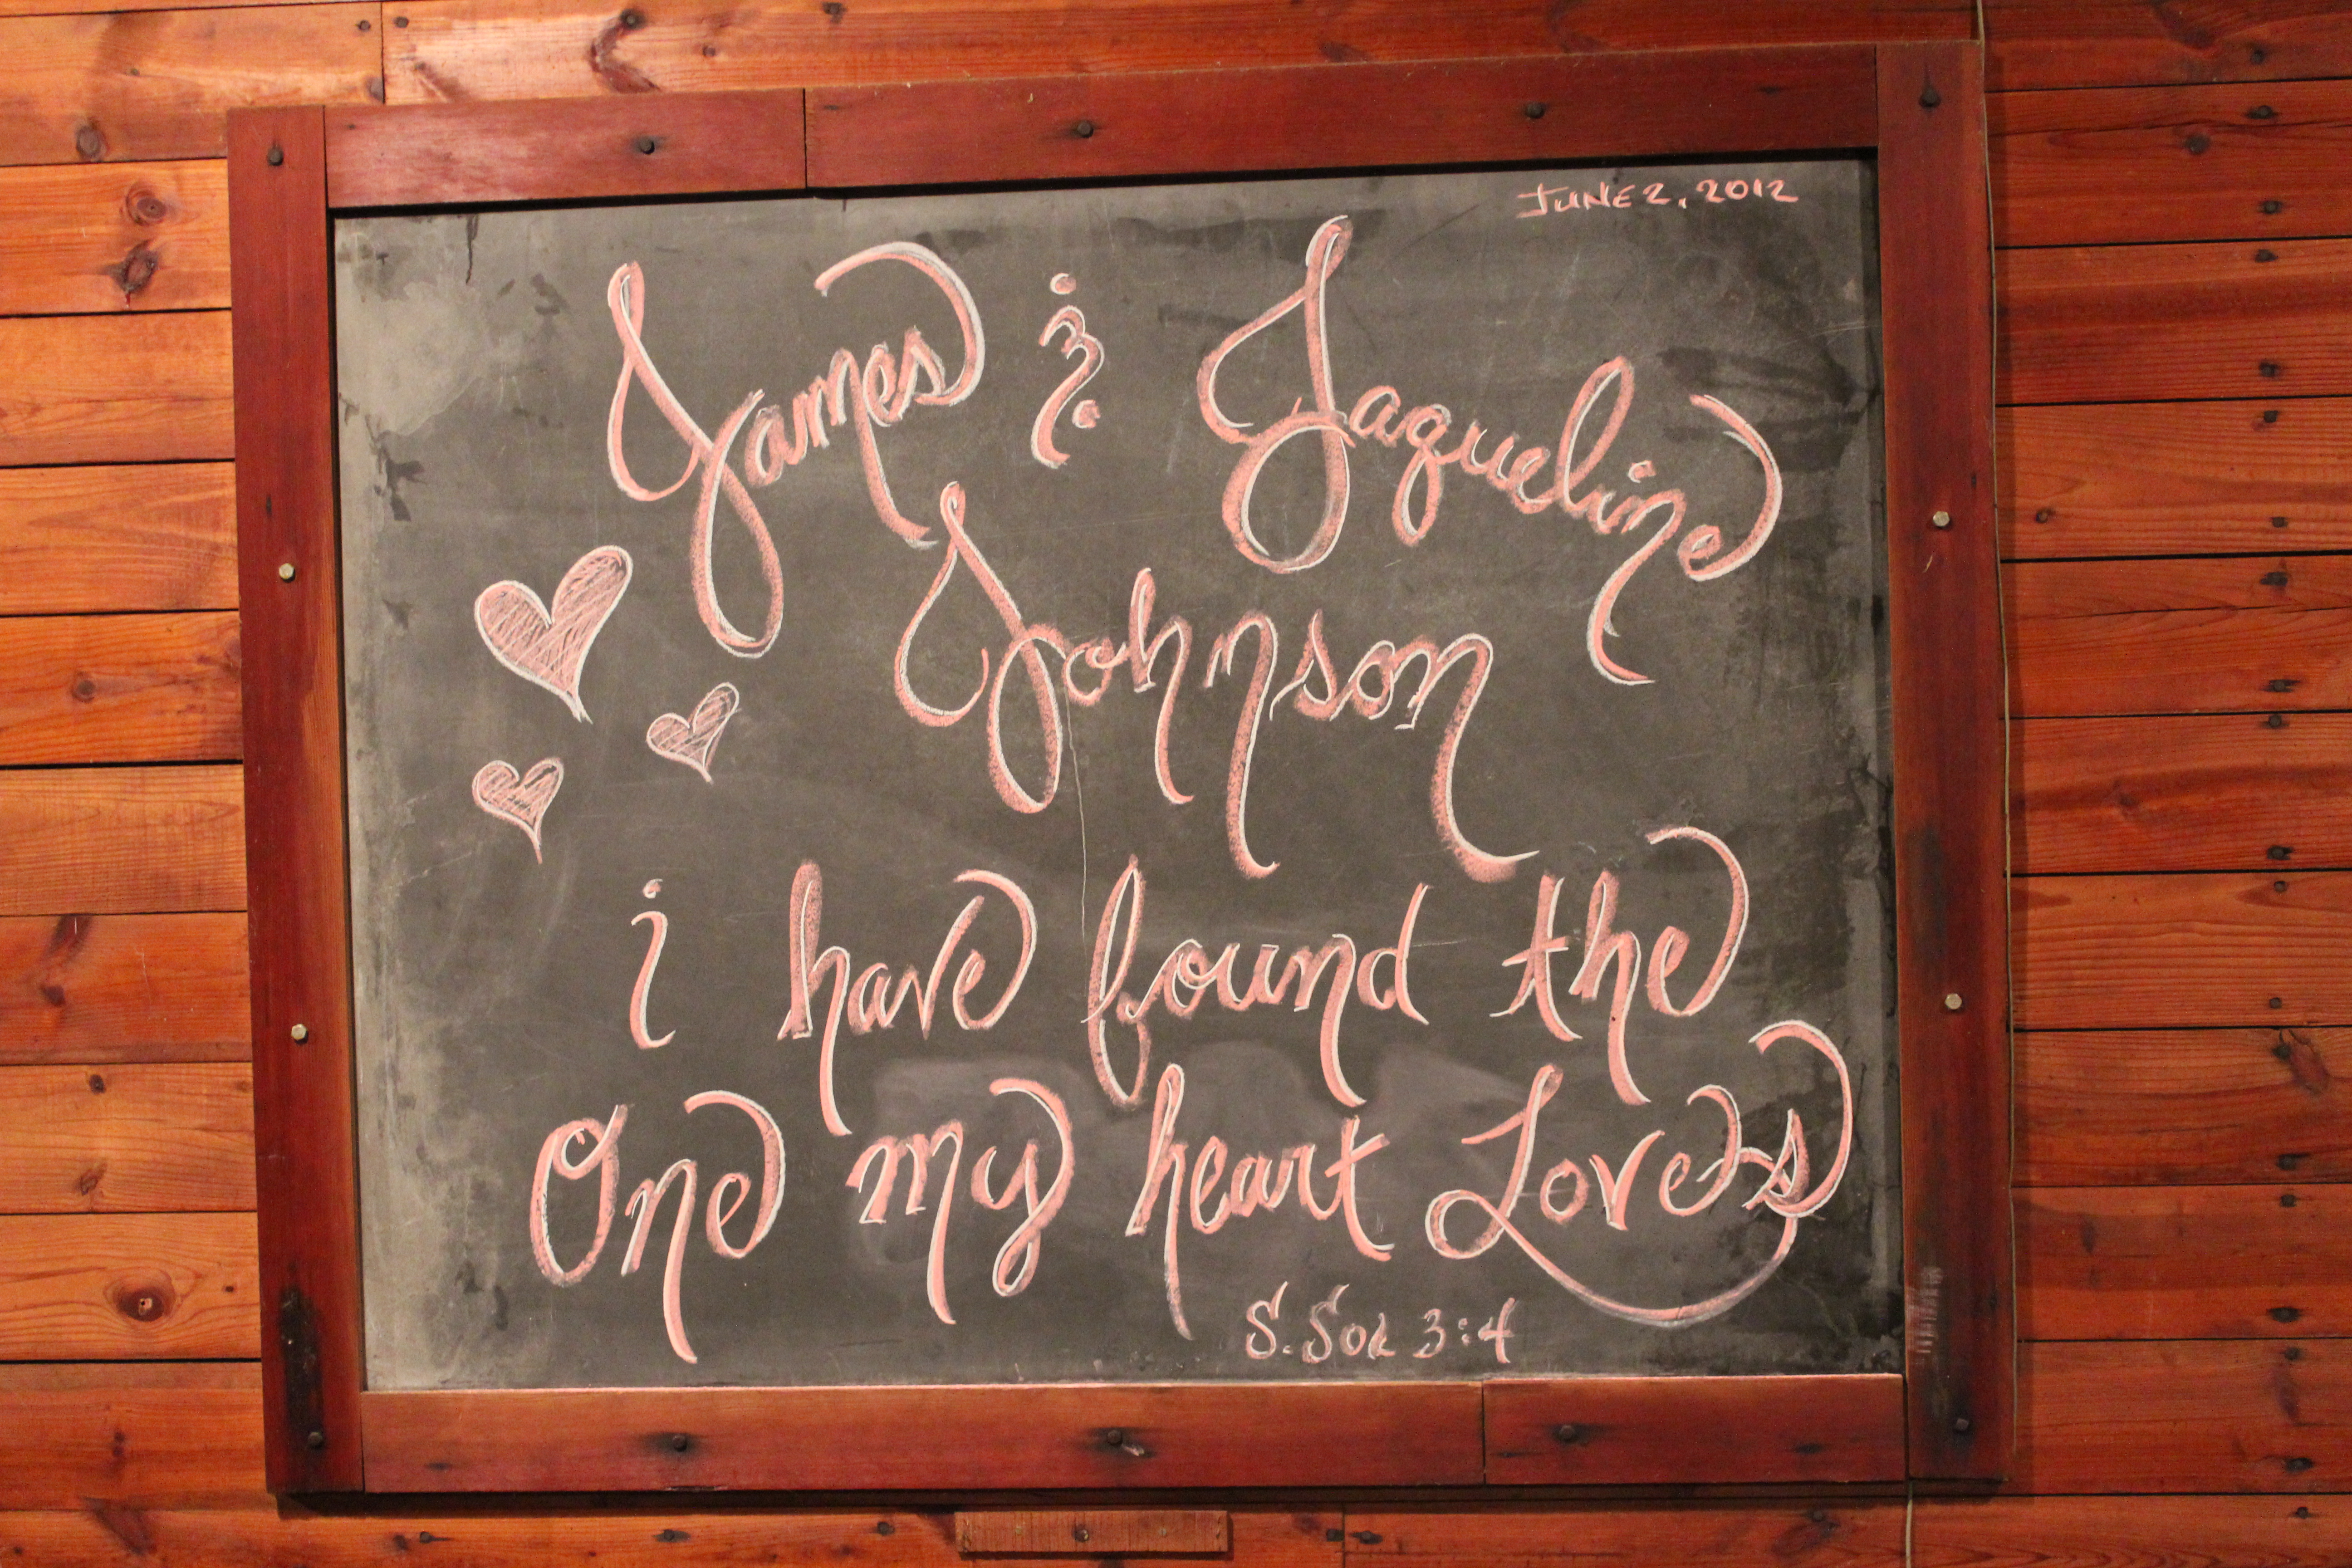 JUNE 2, 2012
James & Jaqueline
Johnson
i have found the
One my heart Loves
S. Sol 3:4